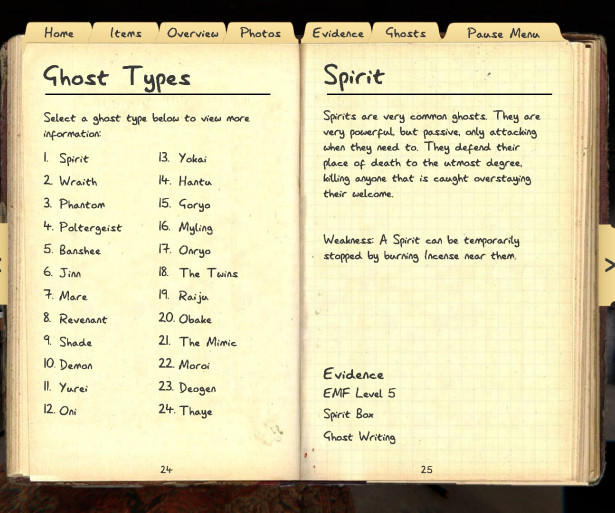 Home Items Overview Photos Evidence Ghosts Pause Menu
Ghost Types
Select a ghost type below to view more
information:
1. Spirit
2. Wraith
3. Phantom
4. Poltergeist
5. Banshee
6. Jinn
7. Mare
8. Revenant
9. Shade
10. Demon
11. Yurei
12. Oni
13. Yokai
14. Hantu
15. Goryo
16. Myling
17. Onryo
18. The Twins
19. Raiju
20. Obake
21. The Mimic
22. Moroi
23. Deogen
24. Thaye
24
Spirit
Spirits are very common ghosts. They are
very powerful, but passive, only attacking
when they need to. They defend their
place of death to the utmost degree,
killing anyone that is caught overstaying
their welcome.
Weakness: A Spirit can be temporarily
stopped by burning Incense near them.
Evidence
EMF Level 5
Spirit Box
Ghost Writing
25